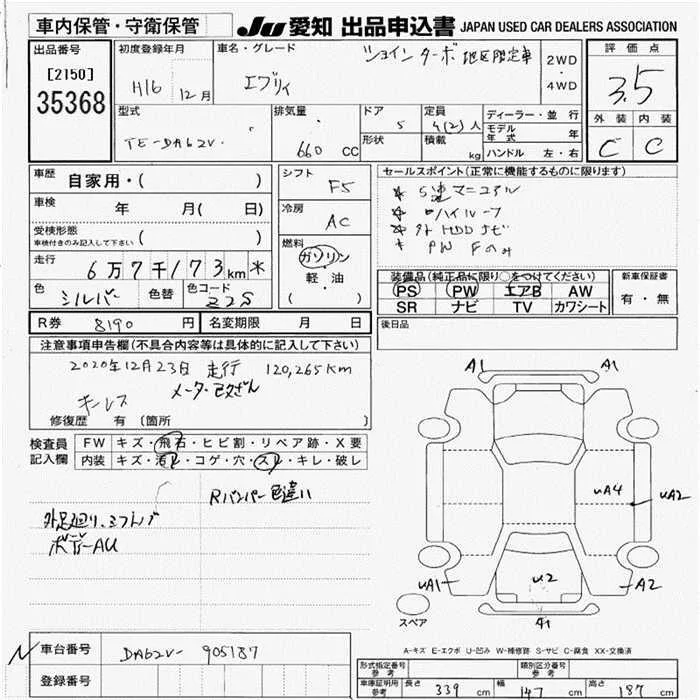 車内保管・守衛保管
JU 愛知 出品申込書 JAPAN USED CAR DEALERS ASSOCIATION
出品番号
[2150]
35368
初度登録年月
H16 12月
車名・グレード
エブリイ
ジョイン ターボ 地区限定車
2WD
・
4WD
評価点
3.5
外装 内装
C C
型式
TE-DA62V
排気量
660 CC
ドア
5
形状
定員
4(2)人
積載
kg
ディーラー・並行
モデル年式 年
ハンドル 左・右
車歴 自家用・( )
車検 年 月( 日)
受検形態
車検付きのみ記入して下さい ( )
走行 6万7千173km
色 シルバー 色替 色コード Z2S
R券 8190 円 名変期限 月 日
シフト
F5
冷房
AC
燃料
ガソリン
・
軽・油
( )
セールスポイント(正常に機能するものに限ります)
* 5速マニュアル
* ハイルーフ
* 外 HDDナビ
* PW Fのみ
装備品(純正品に限り○をつけてください)
PS PW エアB AW
SR ナビ TV カワシート
新車保証書
有・無
後日品
注意事項申告欄(不具合内容等は具体的に記入して下さい)
2020年12月23日 走行 120,265KM
メーター改ざん
キーレス
修復歴 有 〔箇所
検査員記入欄
FW キズ・飛石・ヒビ割・リペア跡・X要
内装 キズ・汚れ・コゲ・穴・スレ・キレ・破レ
Rバンパー色違い
外足廻り、エンブ
ボデーAU
A1 A1
UA4 UA2
UA1 U2 A2
A1
スペア
A-キズ E-エクボ U-凹み W-補修跡 S-サビ C-腐食 XX-交換済
車台番号 DA62V-905187
登録番号
形式指定番号
参考
類別区分番号
参考
車庫証明用
参考
長さ 339 cm 幅 147 cm 高さ 187 cm